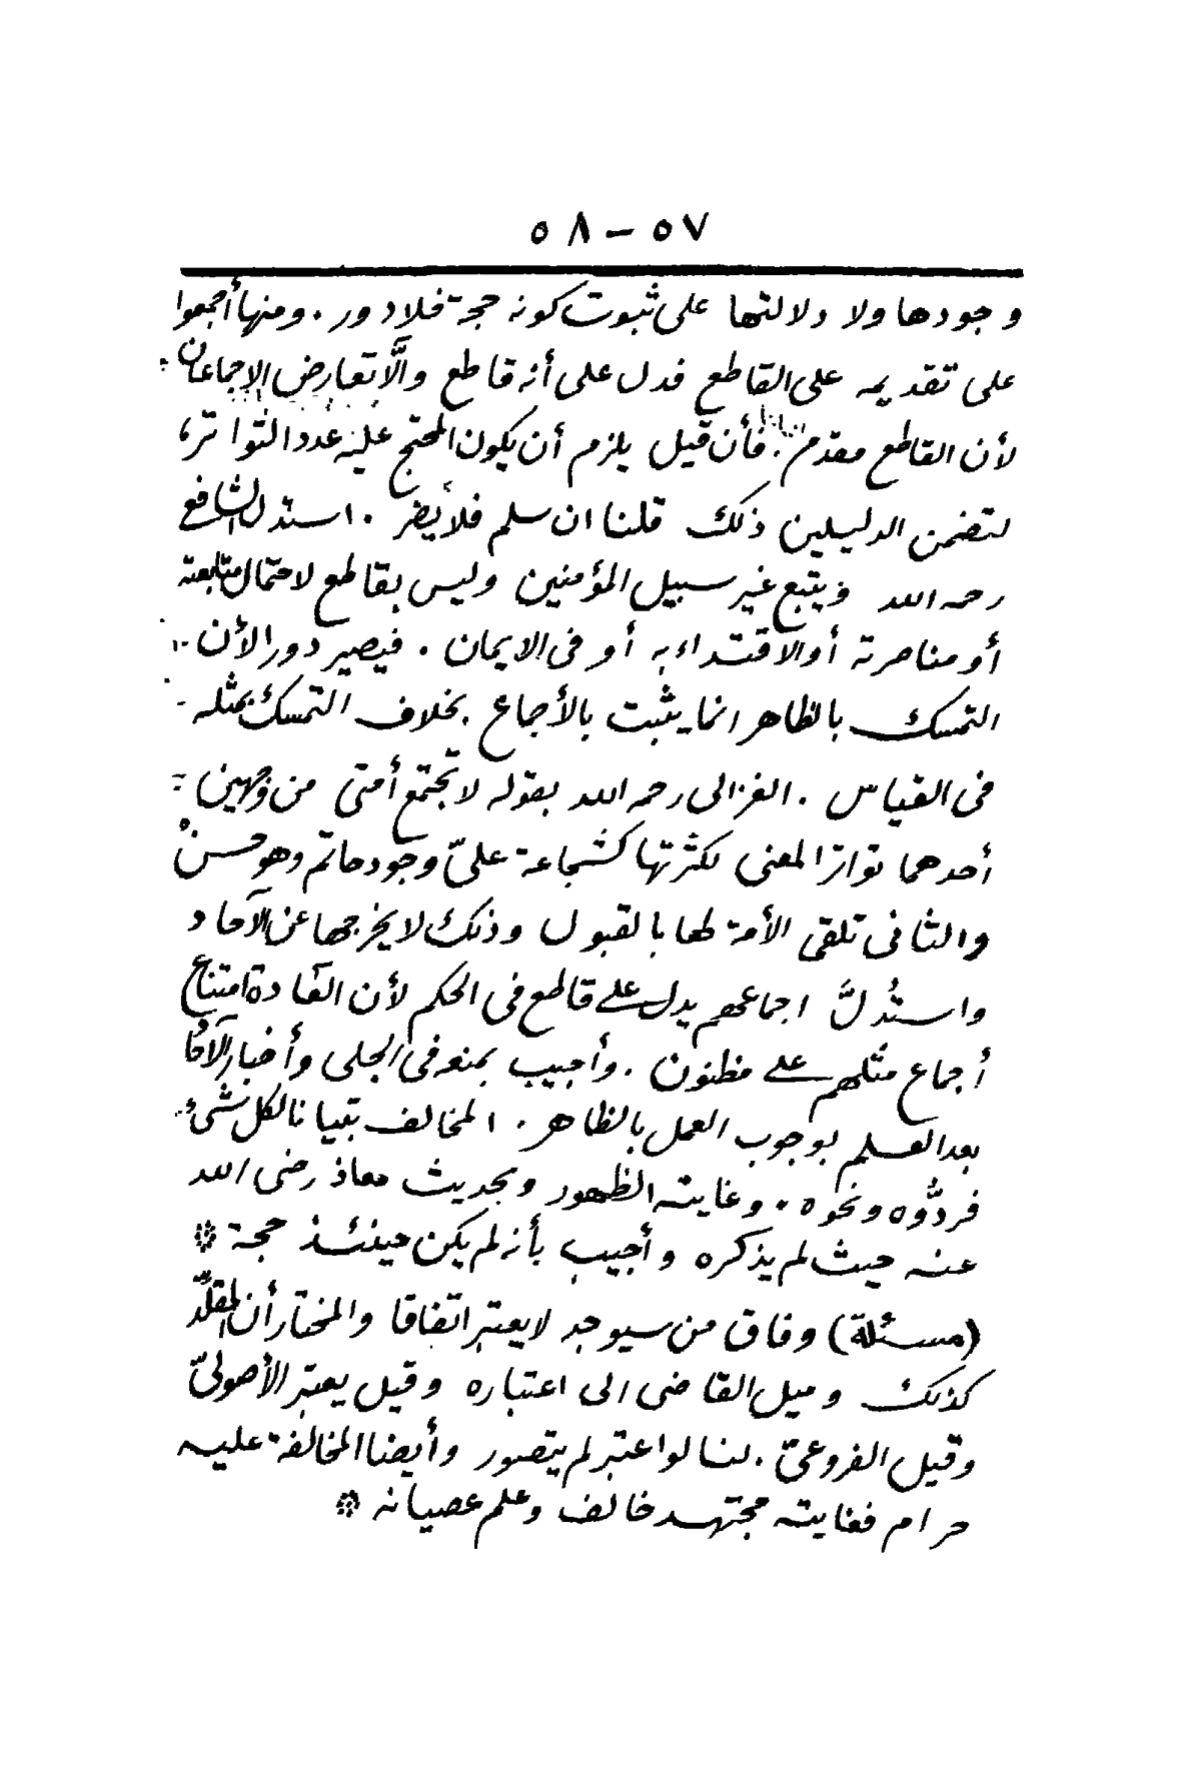 ٥٧ - ٥٨
وجودها ولا دلالتها على ثبوت كونه حجة فلا دور . ومنها أجمعوا
على تقديمه على القاطع فدل على أنه قاطع والَّا تعارض الاجماعان
لأن القاطع مقدم . فأن قيل يلزم أن يكون المحتج عليه عدد التواتر،
لتضمن الدليلين ذلك قلنا ان سلم فلا يضر . استدل الشافع
رحمه الله ويتبع غير سبيل المؤمنين وليس بقاطع لاحتمال متابعته
أو مناصرته أو الاقتداء به أو فى الايمان . فيصير دورا لأن
التمسك بالظاهر انما يثبت بالأجماع بخلاف التمسك بمثله
فى القياس . الغزالى رحمه الله بقوله لا تجتمع أمتى من وجهين
أحدهما تواتر المعنى لكثرتها كشجاعة علىّ وجود حاتم وهو حسنٌ
والثانى تلقى الأمة لها بالقبول وذلك لا يخرجها عن الآحاد
واستُدلَّ اجماعهم يدل على قاطع فى الحكم لأن العادة امتناع
أجماع مثلهم على مظنون . وأجيب بمنعه فى الجلى وأخبار الآحاد
بعد العلم بوجوب العمل بالظاهر . المخالف تبيانا لكل شىء
فردُّوه ونحوه . وغايته الظهور وبحديث معاذ رضى الله
عنه حيث لم يذكره وأجيب بأنه لم يكن حينئذ حجة *
(مسئلة) وفاق من سيوجد لا يعتبر اتفاقا والمختار أن المقلّد
كذلك وميل القاضى الى اعتباره وقيل يعتبر الأصولىّ
وقيل الفروعىّ . لنا لو اعتبر لم يتصور وأيضا المخالفة عليه
حرام فغايته مجتهد خالف وعلم عصيانه *